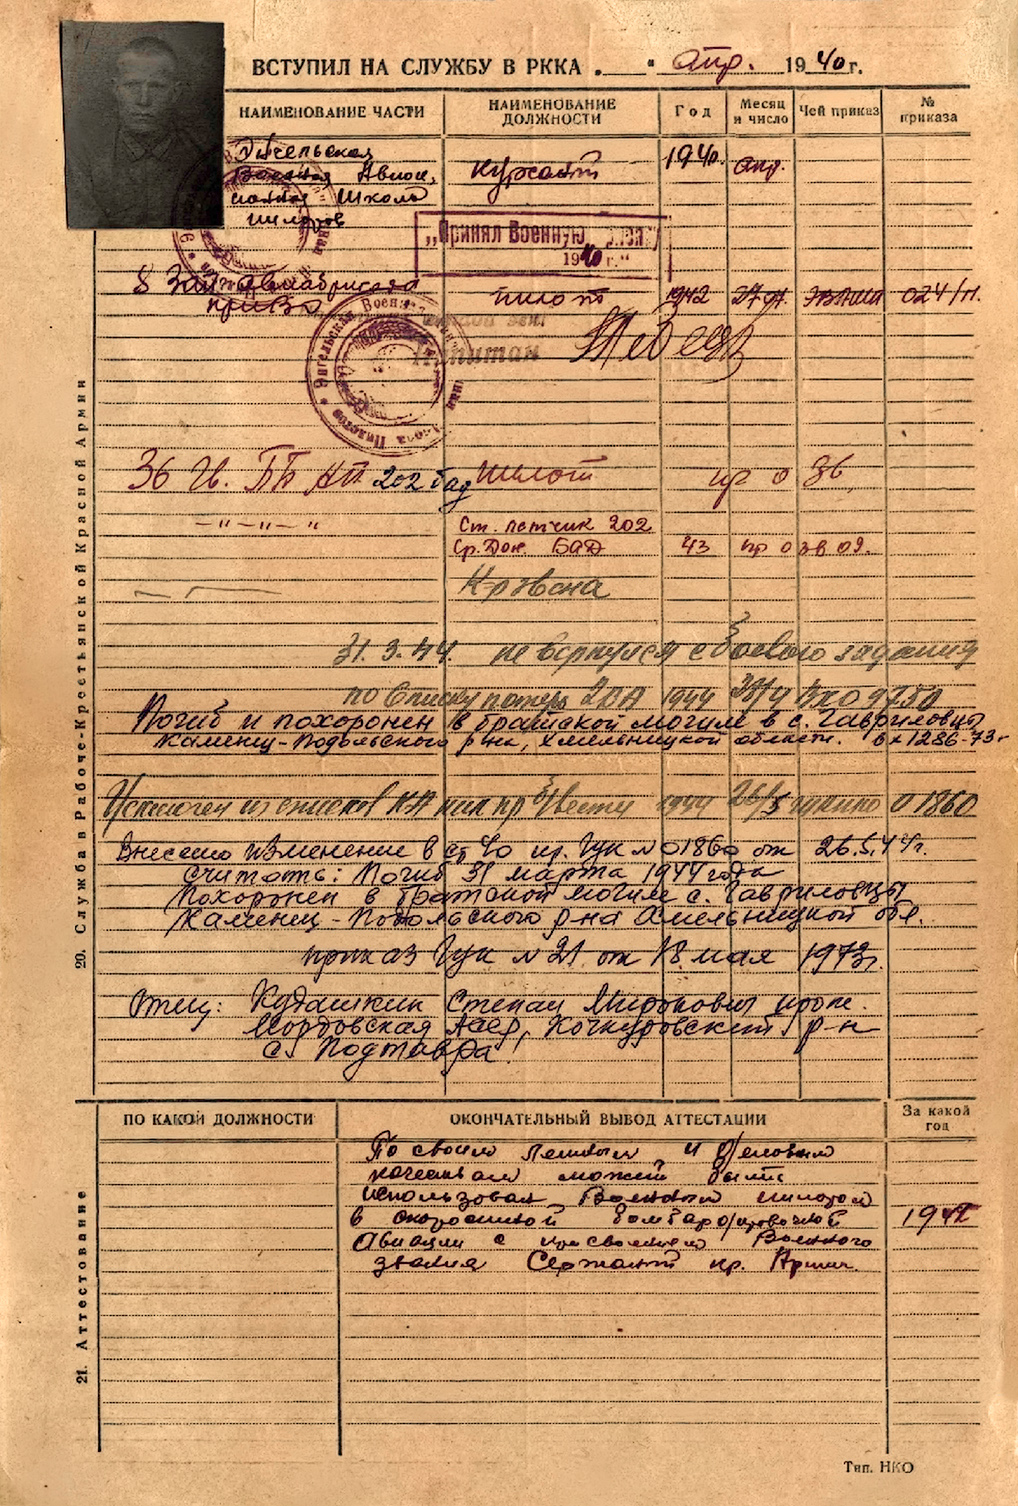 ВСТУПИЛ НА СЛУЖБУ В РККА „ “ апр. 1940 г.
НАИМЕНОВАНИЕ ЧАСТИ
НАИМЕНОВАНИЕ ДОЛЖНОСТИ
Год
Месяц и число
Чей приказ
№ приказа
Энгельская
Военная Авиац.
ионная Школа
пилотов
курсант 1940. апр.
„Принял Военную
1940 г.“
8 Зап. авиабригада
приВО
пилот 1942 024/н.
Капитан
36 Гв. ПБ АП 202 бад пилот пр 0 36
–"–"– "
Ст. летчик 202
Ср. Дон. БАД 43 пр 0 зв 09.
31.3.44. не вернулся с боевого задания
по списку потерь 2ВА 1944 вх 09750
Погиб и похоронен в братской могиле в с. Гавриловцы
Каменец-Подольского р-на, Хмельницкой области. вх 1286-73г
Исключен из списков КА как пр б/вести 1944 26/5 0 1860
Внесено изменение в пр. ГУК № 01860 от 26.5.44г.
Считать: Погиб 31 марта 1944 года
Похоронен в братской могиле с. Гавриловцы
Каменец-Подольского р-на Хмельницкой обл.
приказ ГУК № 21 от 18 мая 1973г.
Отец: Кудашкин Степан Миронович прож.
Мордовская АССР, Кочкуровский р-н
с. Подтавра.
20. Служба в Рабоче-Крестьянской Красной Армии
ПО КАКОЙ ДОЛЖНОСТИ
ОКОНЧАТЕЛЬНЫЙ ВЫВОД АТТЕСТАЦИИ
За какой год
По своим личным и деловым
качествам может быть
использован Военным пилотом
в скоростной бомбардировочной
Авиации с присвоением Военного
звания Сержант кр. Армии.
1942
21. Аттестование
Тип. НКО